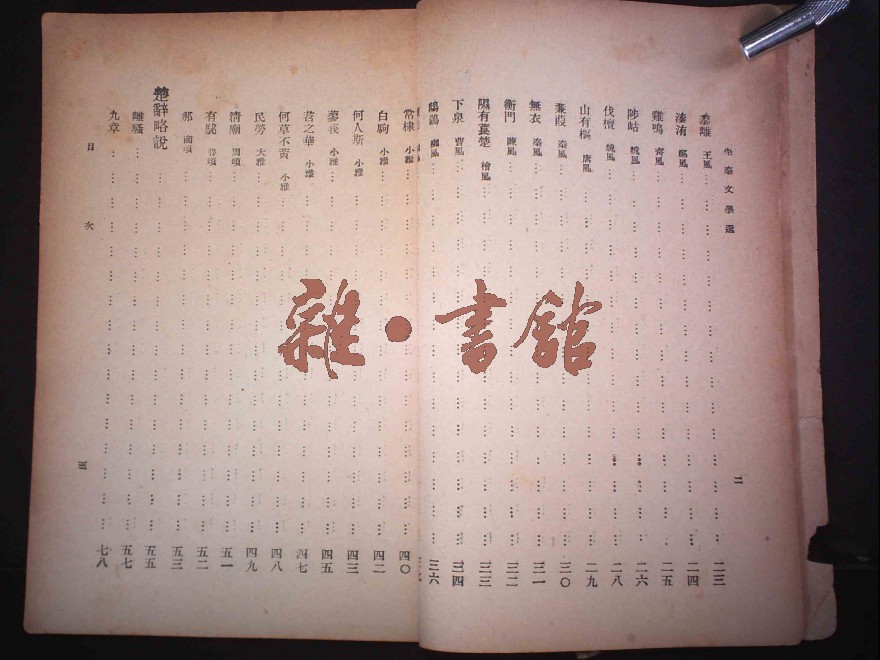 先秦文學選
二
黍離 王風 二三
溱洧 鄭風 二四
雞鳴 齊風 二五
陟岵 魏風 二六
伐檀 魏風 二八
山有樞 唐風 二九
蒹葭 秦風 三〇
無衣 秦風 三一
衡門 陳風 三二
隰有萇楚 檜風 三三
下泉 曹風 三四
鴟鴞 豳風 三六
常棣 小雅 四〇
白駒 小雅 四二
何人斯 小雅 四三
蓼莪 小雅 四五
苕之華 小雅 四七
何草不黃 小雅 四八
民勞 大雅 四九
清廟 周頌 五一
有駜 魯頌 五二
那 商頌 五三
楚辭略說 五五
離騷 五七
九章 七八
目次
雜·書館